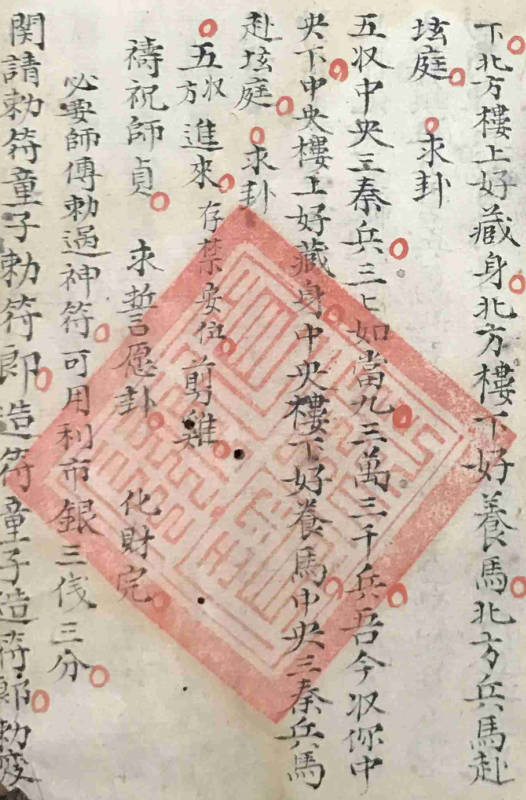 下北方樓上好藏身北方樓下好養馬北方兵馬赴
垓庭 求卦
五収中央三秦兵三〻如當九三萬三千兵吾今収你中
央下中央樓上好藏身中央樓下好養馬中央三秦兵馬
赴垓庭 求卦
五方収進來存禁安位剪雞
禱祝師貞 求誓愿卦 化財完
必要師傳勅過神符可用利市銀三伐三分
関請勅符童子勅符郎造符童子造符郎勅変